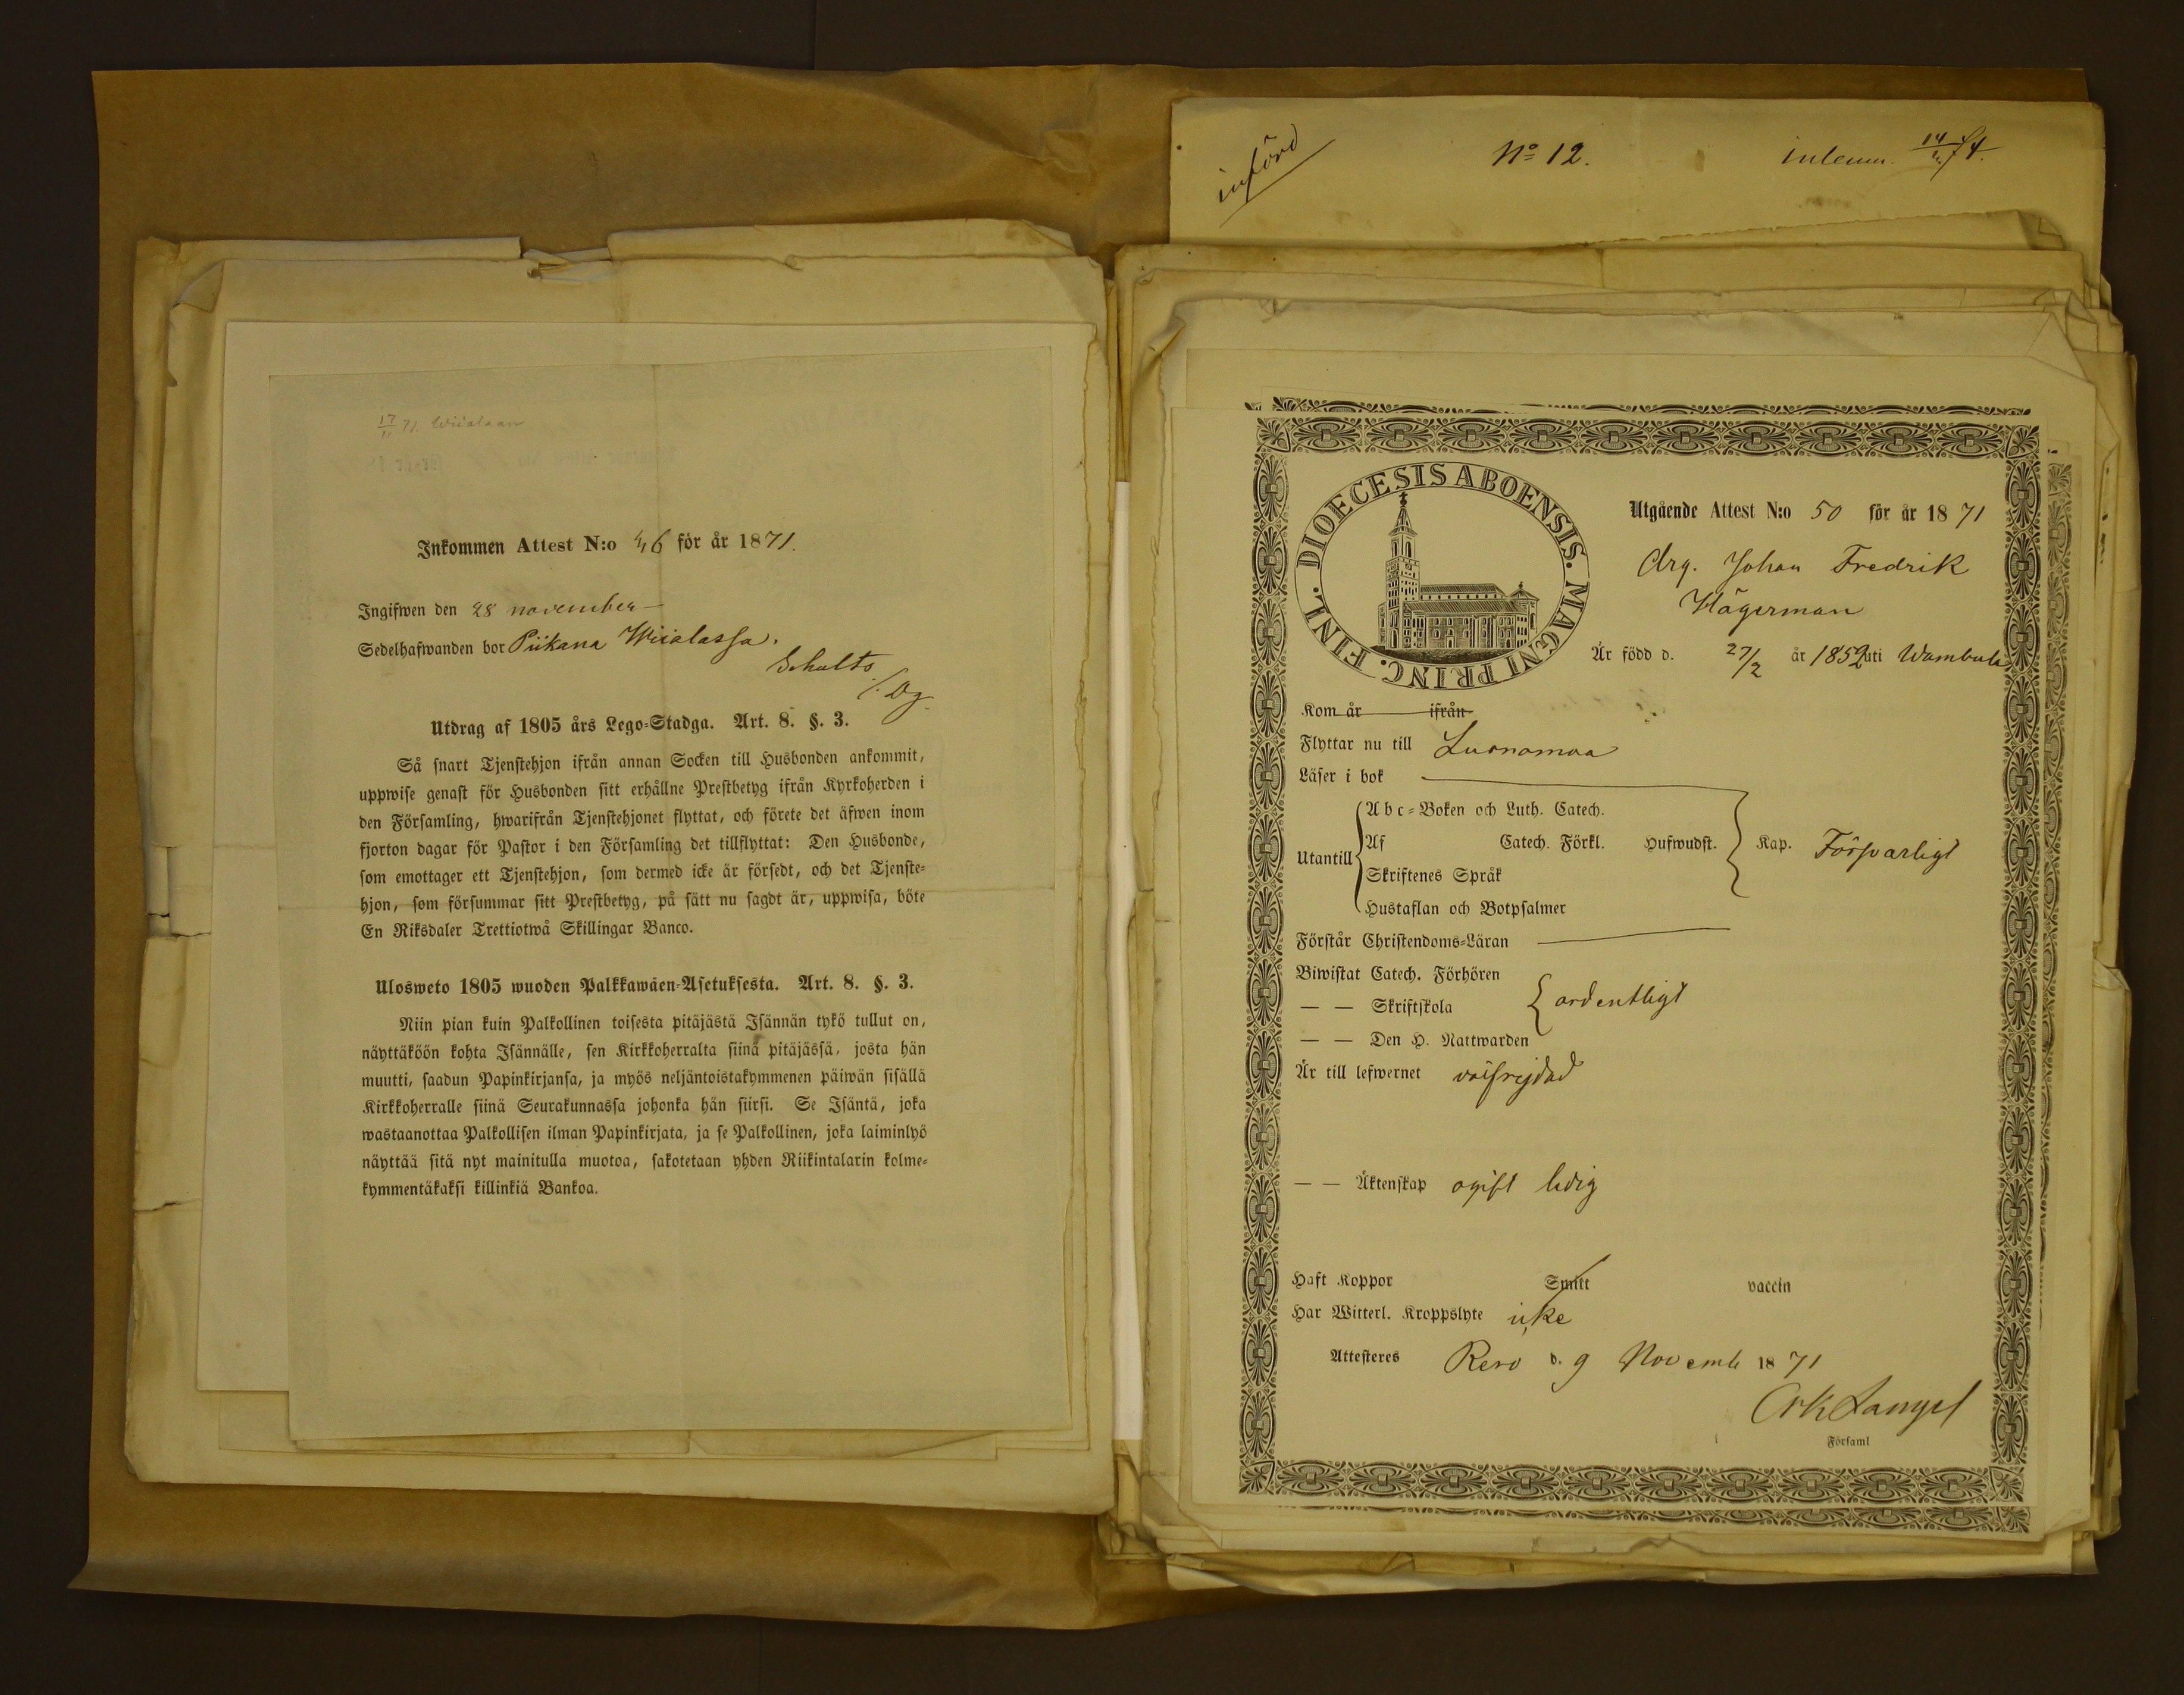 17/11 71. Wiialaan
Inkommen Attest N:o 46 för år 1871.
Ingifwen den 28 november
Sedelhafwanden bor Piikana Wiialassa.
Utdrag af 1805 års Lego-Stadga. Art. 8. §. 3.
Så snart Tjenstehjon ifrån annan Socken till Husbonden ankommit,
uppwise genast för Husbonden sitt erhållne Prestbetyg ifrån Kyrkoherden i
den Församling, hwarifrån Tjenstehjonet flyttat, och förete det äfwen inom
fjorton dagar för Pastor i den Församling det tillflyttat: Den Husbonde,
som emottager ett Tjenstehjon, som dermed icke är försedt, och det Tjenste-
hjon, som försummar sitt Prestbetyg, på sätt nu sagdt är, uppwisa, böte
En Riksdaler Trettiotwå Skillingar Banco.
Ulosweto 1805 wuoden Palkkawäen-Asetuksesta. Art. 8. §. 3.
Niin pian kuin Palkollinen toisesta pitäjästä Isännän tykö tullut on,
näyttäköön kohta Isännälle, sen Kirkkoherralta siinä pitäjässä, josta hän
muutti, saadun Papinkirjansa, ja myös neljäntoistakymmenen päiwän sisällä
Kirkkoherralle siinä Seurakunnassa johonka hän siirsi. Se Isäntä, joka
wastaanottaa Palkollisen ilman Papinkirjata, ja se Palkollinen, joka laiminlyö
näyttää sitä nyt mainitulla muotoa, sakotetaan yhden Riikintalarin kolme-
kymmentäkaksi killinkiä Bankoa.
införd
No 12.
DIOECESIS ABOENSIS. MAGNI PRINC. FINL.
Utgående Attest N:o 50 för år 1871
Drg. Johan Fredrik
Hägerman
Är född d. 27/2 år 1852 uti Wambula
Kom år ifrån
Flyttar nu till Luonomaa
Läser i bok
Utantill
Abc-Boken och Luth. Catech.
Af Catech. Förkl. Hufwudst. Kap. Försvarligt
Skriftenes Språk
Hustaflan och Botpsalmer
Förstår Christendoms-Läran
Biwistat Catech. Förhören
— — Skriftskola ordentligt
— — Den H. Nattwarden
Är till lefwernet oförvitlig
— — Äktenskap ogift ledig
Haft Koppor Smitt vaccin
Har Witterl. Kroppslyte icke
Attesteres Revo d. 9 Novemb 1871
Församl